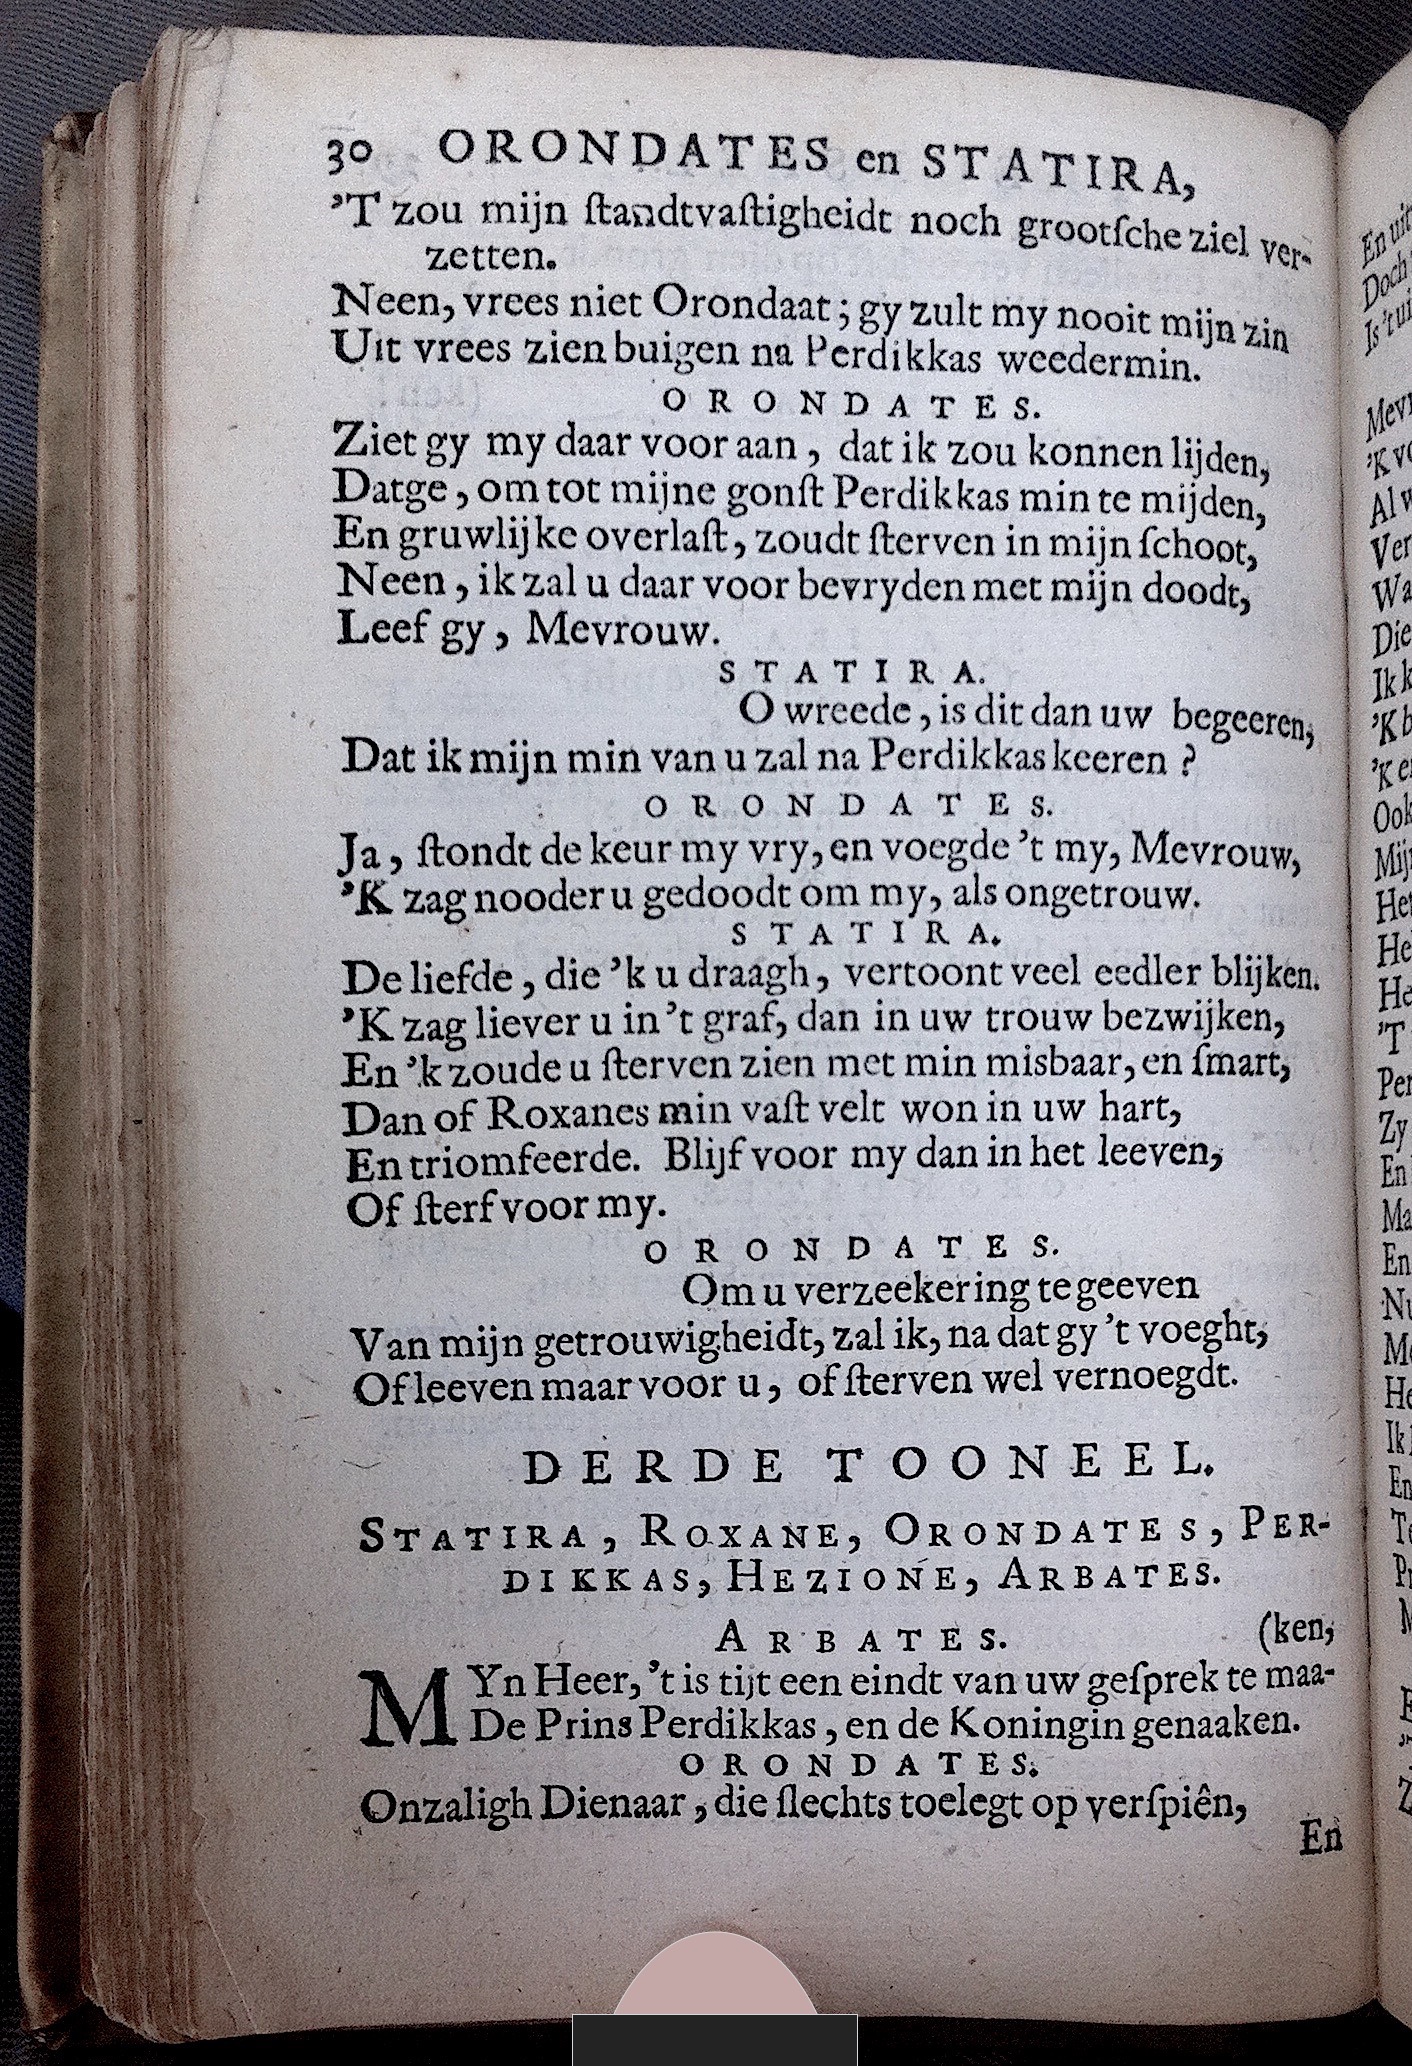 30 ORONDATES en STATIRA,
'T zou mijn ſtandtvaſtigheidt noch grootſche ziel ver-
zetten.
Neen, vrees niet Orondaat; gy zult my nooit mijn zin
Uit vrees zien buigen na Perdikkas weedermin.
ORONDATES.
Ziet gy my daar voor aan, dat ik zou konnen lijden,
Datge, om tot mijne gonſt Perdikkas min te mijden,
En gruwlijke overlaſt, zoudt ſterven in mijn ſchoot,
Neen, ik zal u daar voor bevryden met mijn doodt,
Leef gy, Mevrouw.
STATIRA.
O wreede, is dit dan uw begeeren,
Dat ik mijn min van u zal na Perdikkas keeren?
ORONDATES.
Ja, ſtondt de keur my vry, en voegde 't my, Mevrouw,
'K zag nooder u gedoodt om my, als ongetrouw.
STATIRA.
De liefde, die 'k u draagh, vertoont veel eedler blijken.
'K zag liever u in 't graf, dan in uw trouw bezwijken,
En 'k zoude u ſterven zien met min misbaar, en ſmart,
Dan of Roxanes min vaſt velt won in uw hart,
En triomfeerde. Blijf voor my dan in het leeven,
Of ſterf voor my.
ORONDATES.
Om u verzeekering te geeven
Van mijn getrouwigheidt, zal ik, na dat gy 't voeght,
Of leeven maar voor u, of ſterven wel vernoegdt.
DERDE TOONEEL.
STATIRA, ROXANE, ORONDATES, PER-
DIKKAS, HEZIONE, ARBATES.
ARBATES. (ken,
MYn Heer, 't is tijt een eindt van uw geſprek te maa-
De Prins Perdikkas, en de Koningin genaaken.
ORONDATES.
Onzaligh Dienaar, die ſlechts toelegt op verſpiên,
En